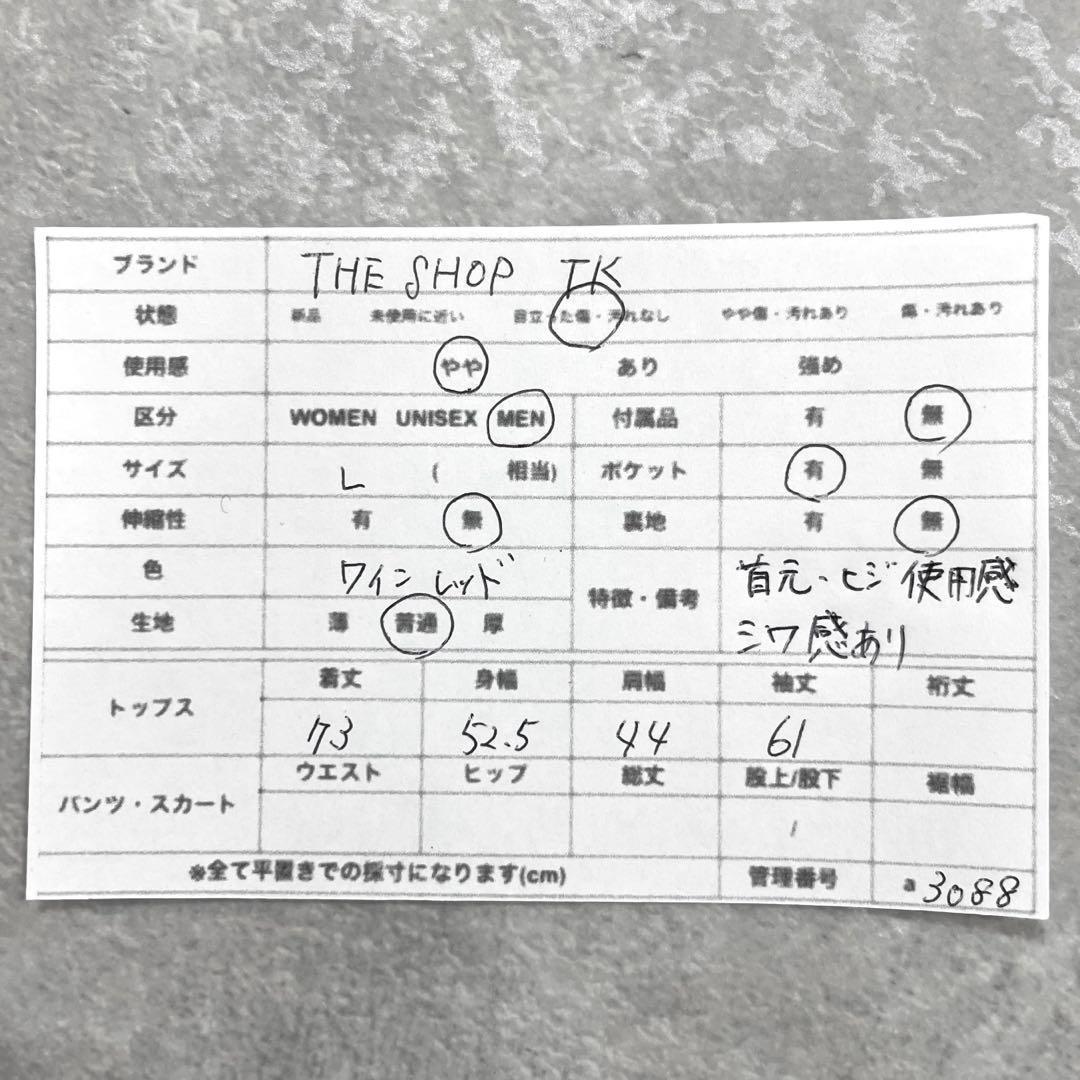 ブランド THE SHOP TK
状態 新品 未使用に近い 目立った傷・汚れなし やや傷・汚れあり 傷・汚れあり
使用感 やや あり 強め
区分 WOMEN UNISEX MEN 付属品 有 無
サイズ L ( 相当) ポケット 有 無
伸縮性 有 無 裏地 有 無
色 ワインレッド 特徴・備考 首元・ヒジ 使用感
生地 薄 普通 厚 シワ感あり
トップス 着丈 身幅 肩幅 袖丈 裄丈
73 52.5 44 61
パンツ・スカート ウエスト ヒップ 総丈 股上/股下 裾幅
/
※全て平置きでの採寸になります(cm) 管理番号 a 3088